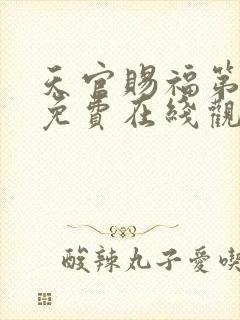 天官賜福第
免費在綫觀
酸辣丸子愛喫